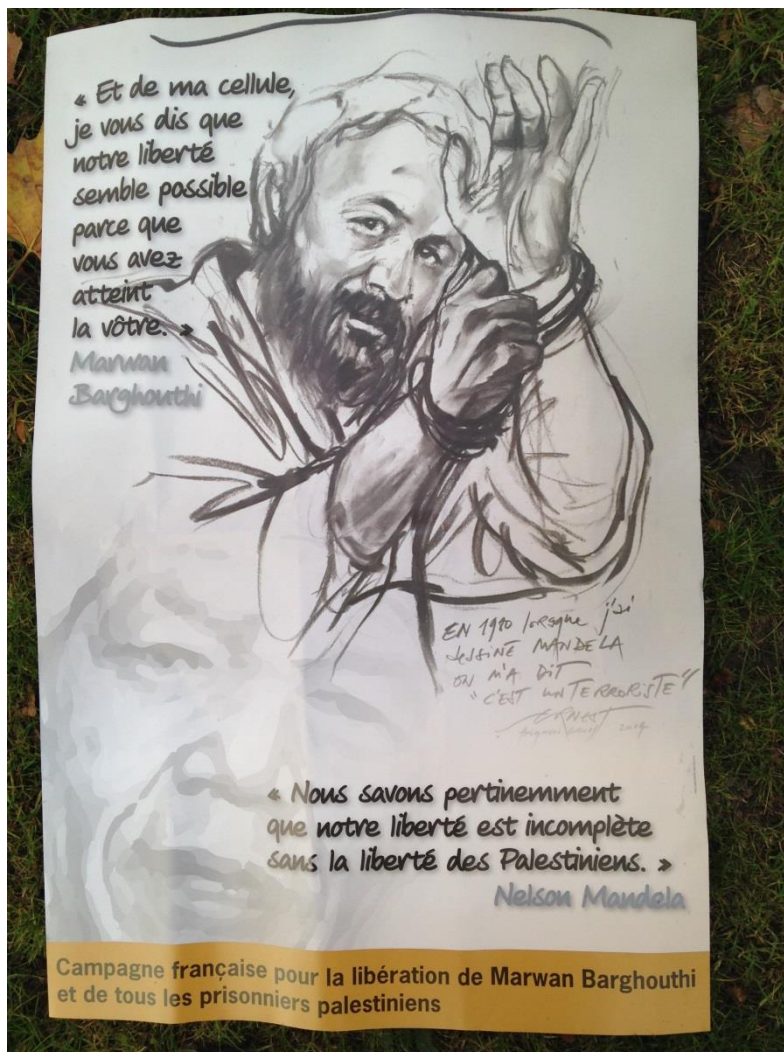 « Et de ma cellule,
je vous dis que
notre liberté
semble possible
parce que
vous avez
atteint
la vôtre. »
Marwan
Barghouthi
EN 1980 lorsque j'ai
dessiné MANDELA
ON M'A DIT
"C'EST UN TERRORISTE"
ERNEST
2014
« Nous savons pertinemment
que notre liberté est incomplète
sans la liberté des Palestiniens. »
Nelson Mandela
Campagne française pour la libération de Marwan Barghouthi
et de tous les prisonniers palestiniens